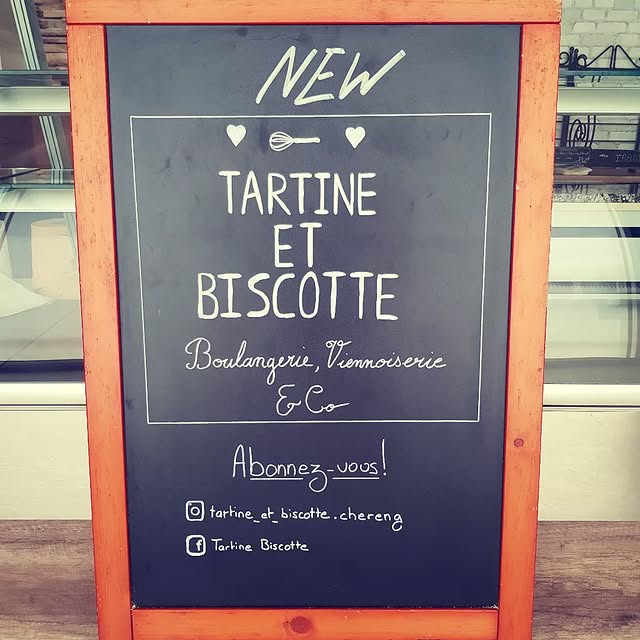 NEW
TARTINE
ET
BISCOTTE
Boulangerie, Viennoiserie
& Co
Abonnez-vous!
tartine_et_biscotte.chereng
Tartine Biscotte